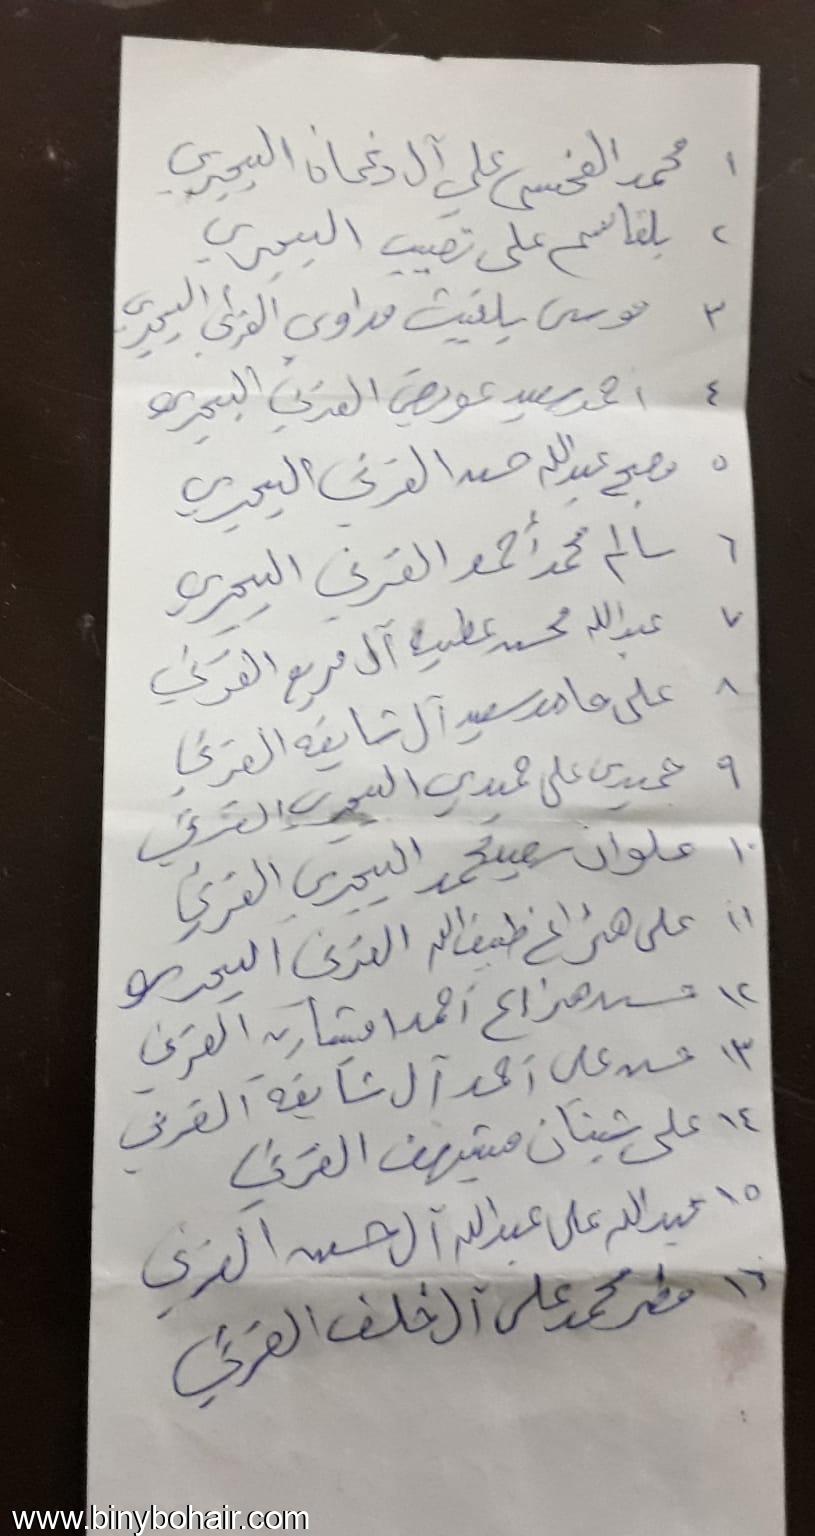 ١ محمد الفحسي علي آل دغمان البحيري
٢ بلقاسم علي نصيب البحيري
٣ موسى بلغيث مداوي القرني البحيري
٤ أحمد سعيد عوض القرني البحيري
٥ مصبح عبدالله حسن القرني البحيري
٦ سالم محمد أحمد القرني البحيري
٧ عبدالله محسن عطيه آل مريع القرني
٨ علي حامد سعيد آل شايقه القرني
٩ حميدي علي حميدي البحيري القرني
١٠ علوان سعيد محمد البحيري القرني
١١ علي هزاع ضيف الله القرني البحيري
١٢ حسن هزاع أحمد القرني
١٣ حسن علي أحمد آل شايقة القرني
١٤ علي شينان مشهف القرني
١٥ عبدالله علي عبدالله آل حسين القرني
١٦ مطر محمد علي آل خلف القرني
www.binybohair.com